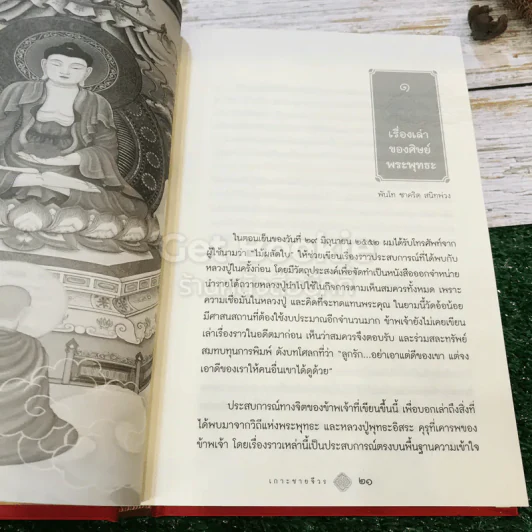 ๑
เรื่องเล่า
ของศิษย์
พระพุทธะ
พันโท ชาคริต สนิทพ่วง
ในตอนเย็นของวันที่ ๒๙ มิถุนายน ๒๕๕๒ ผมได้รับโทรศัพท์จาก
ผู้ใช้นามว่า "ไม้มลัดใบ" ให้ช่วยเขียนเรื่องราวประสบการณ์ที่ได้พบกับ
หลวงปู่ในครั้งก่อน โดยมีวัตถุประสงค์เพื่อจัดทำเป็นหนังสือออกจำหน่าย
นำรายได้ถวายหลวงปู่นำไปใช้ในกิจการตามเห็นสมควรทั้งหมด เพราะ
ความเชื่อมั่นในหลวงปู่ และคิดที่จะทดแทนพระคุณ ในยามนี้วัดอ้อน้อย
มีศาสนสถานที่ต้องใช้งบประมาณอีกจำนวนมาก ข้าพเจ้ายังไม่เคยเขียน
เล่าเรื่องราวในอดีตมาก่อน เห็นว่าสมควรจึงตอบรับ และร่วมสละทรัพย์
สมทบทุนการพิมพ์ ดังบทโศลกที่ว่า "ลูกรัก...อย่าเอาแต่ดีของเขา แต่จง
เอาดีของเราให้คนอื่นเขาได้ดูด้วย"
ประสบการณ์ทางจิตของข้าพเจ้าที่เขียนขึ้นนี้ เพื่อบอกเล่าถึงสิ่งที่
ได้พบมาจากวิถีแห่งพระพุทธะ และหลวงปู่พุทธะอิสระ คุรุที่เคารพของ
ข้าพเจ้า โดยเรื่องราวเหล่านี้เป็นประสบการณ์ตรงบนพื้นฐานความเข้าใจ
เกาะชายจีวร ๒๑